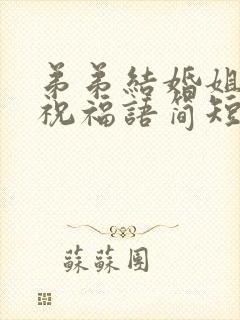 弟弟結婚姐
祝福語简短
蘇蘇團